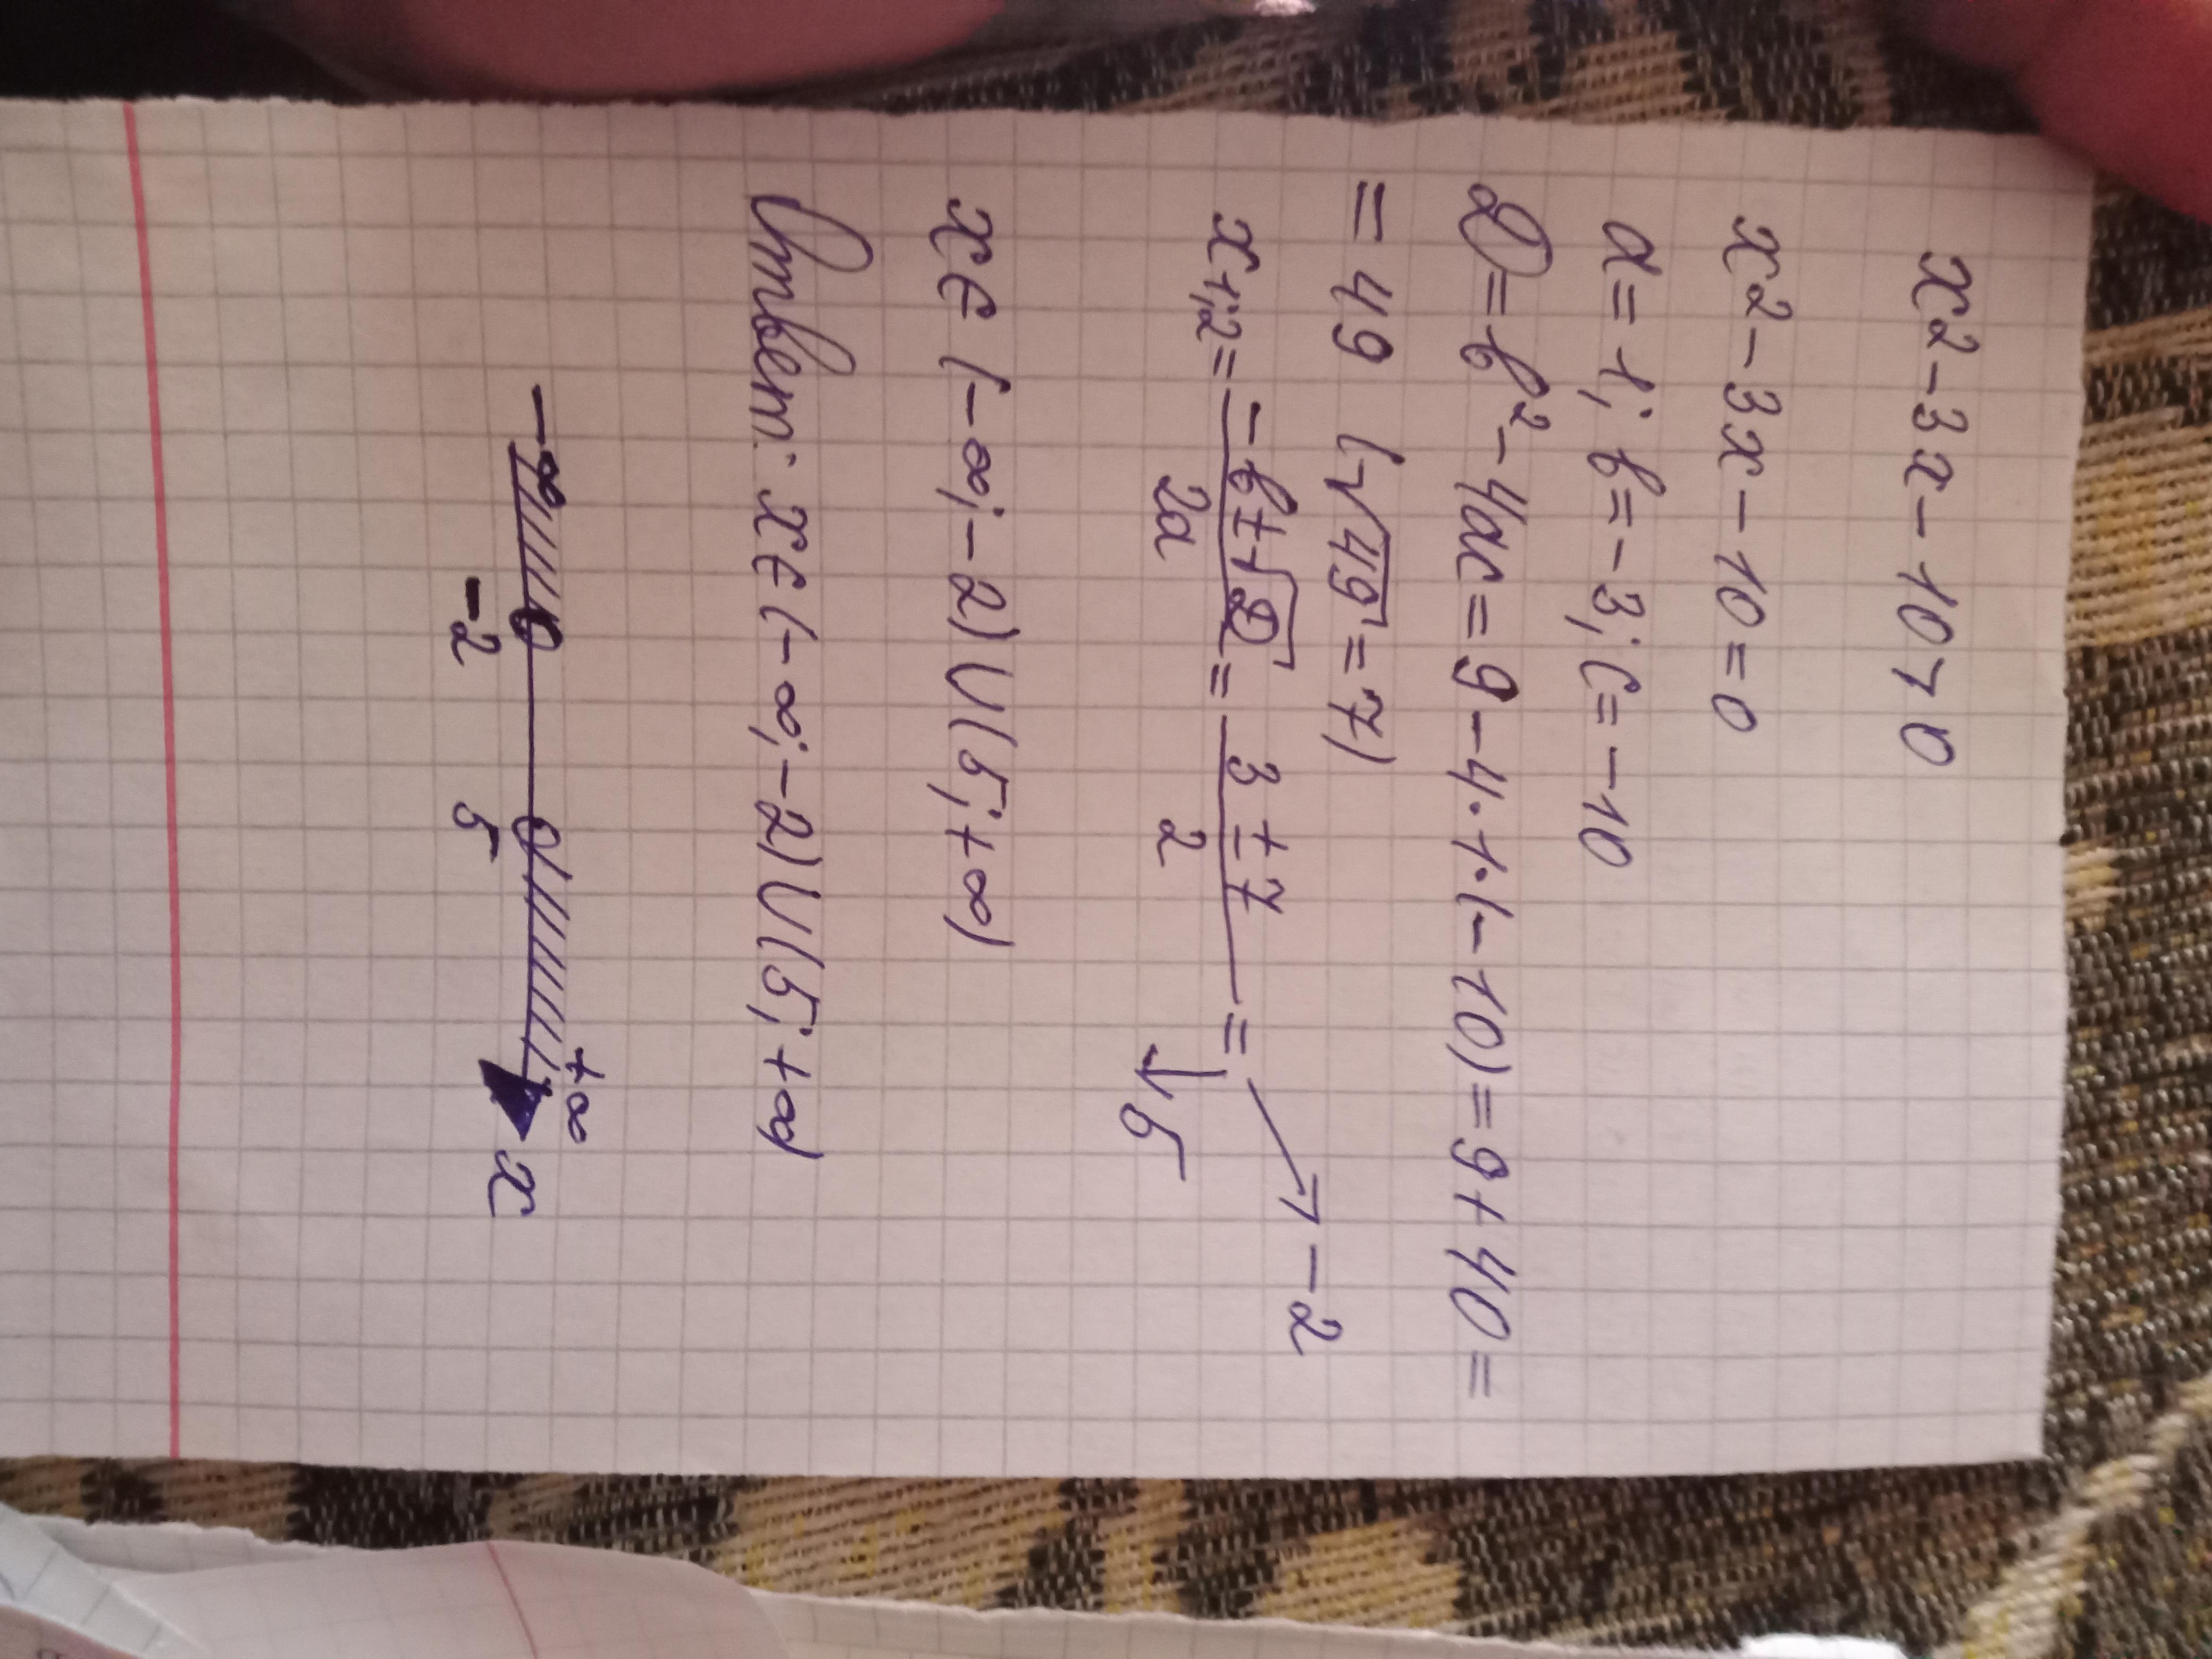 x²-3x-10>0
x²-3x-10=0
a=1; b=-3; c=-10
D=b²-4ac=9-4·1·(-10)=9+40=
=49 (√49=7)
x₁,₂= (-b±√D)/2a = (3±7)/2 = → -2
↓ 5
x∈(-∞;-2)U(5;+∞)
Ответ: x∈(-∞;-2)U(5;+∞)
-∞ +∞
-2 5 x